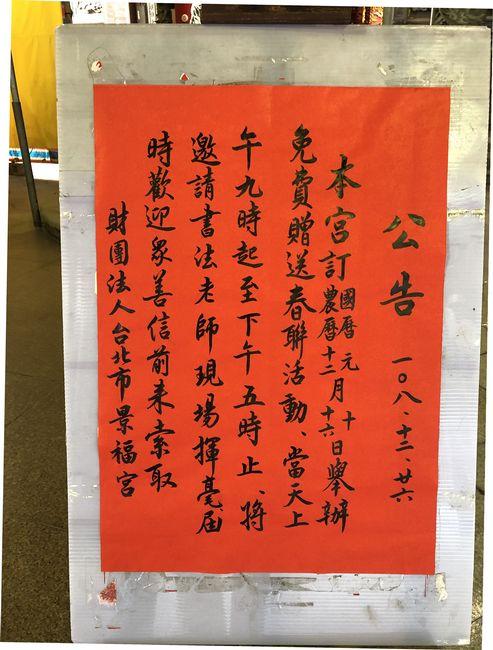 公告 一〇八、十二、廿六
本宮訂國曆元農曆十二月十十六日舉辦
免費贈送春聯活動、當天上
午九時起至下午五時止、將
邀請書法老師現場揮毫、屆
時歡迎衆善信前来索取
財團法人台北市景福宮